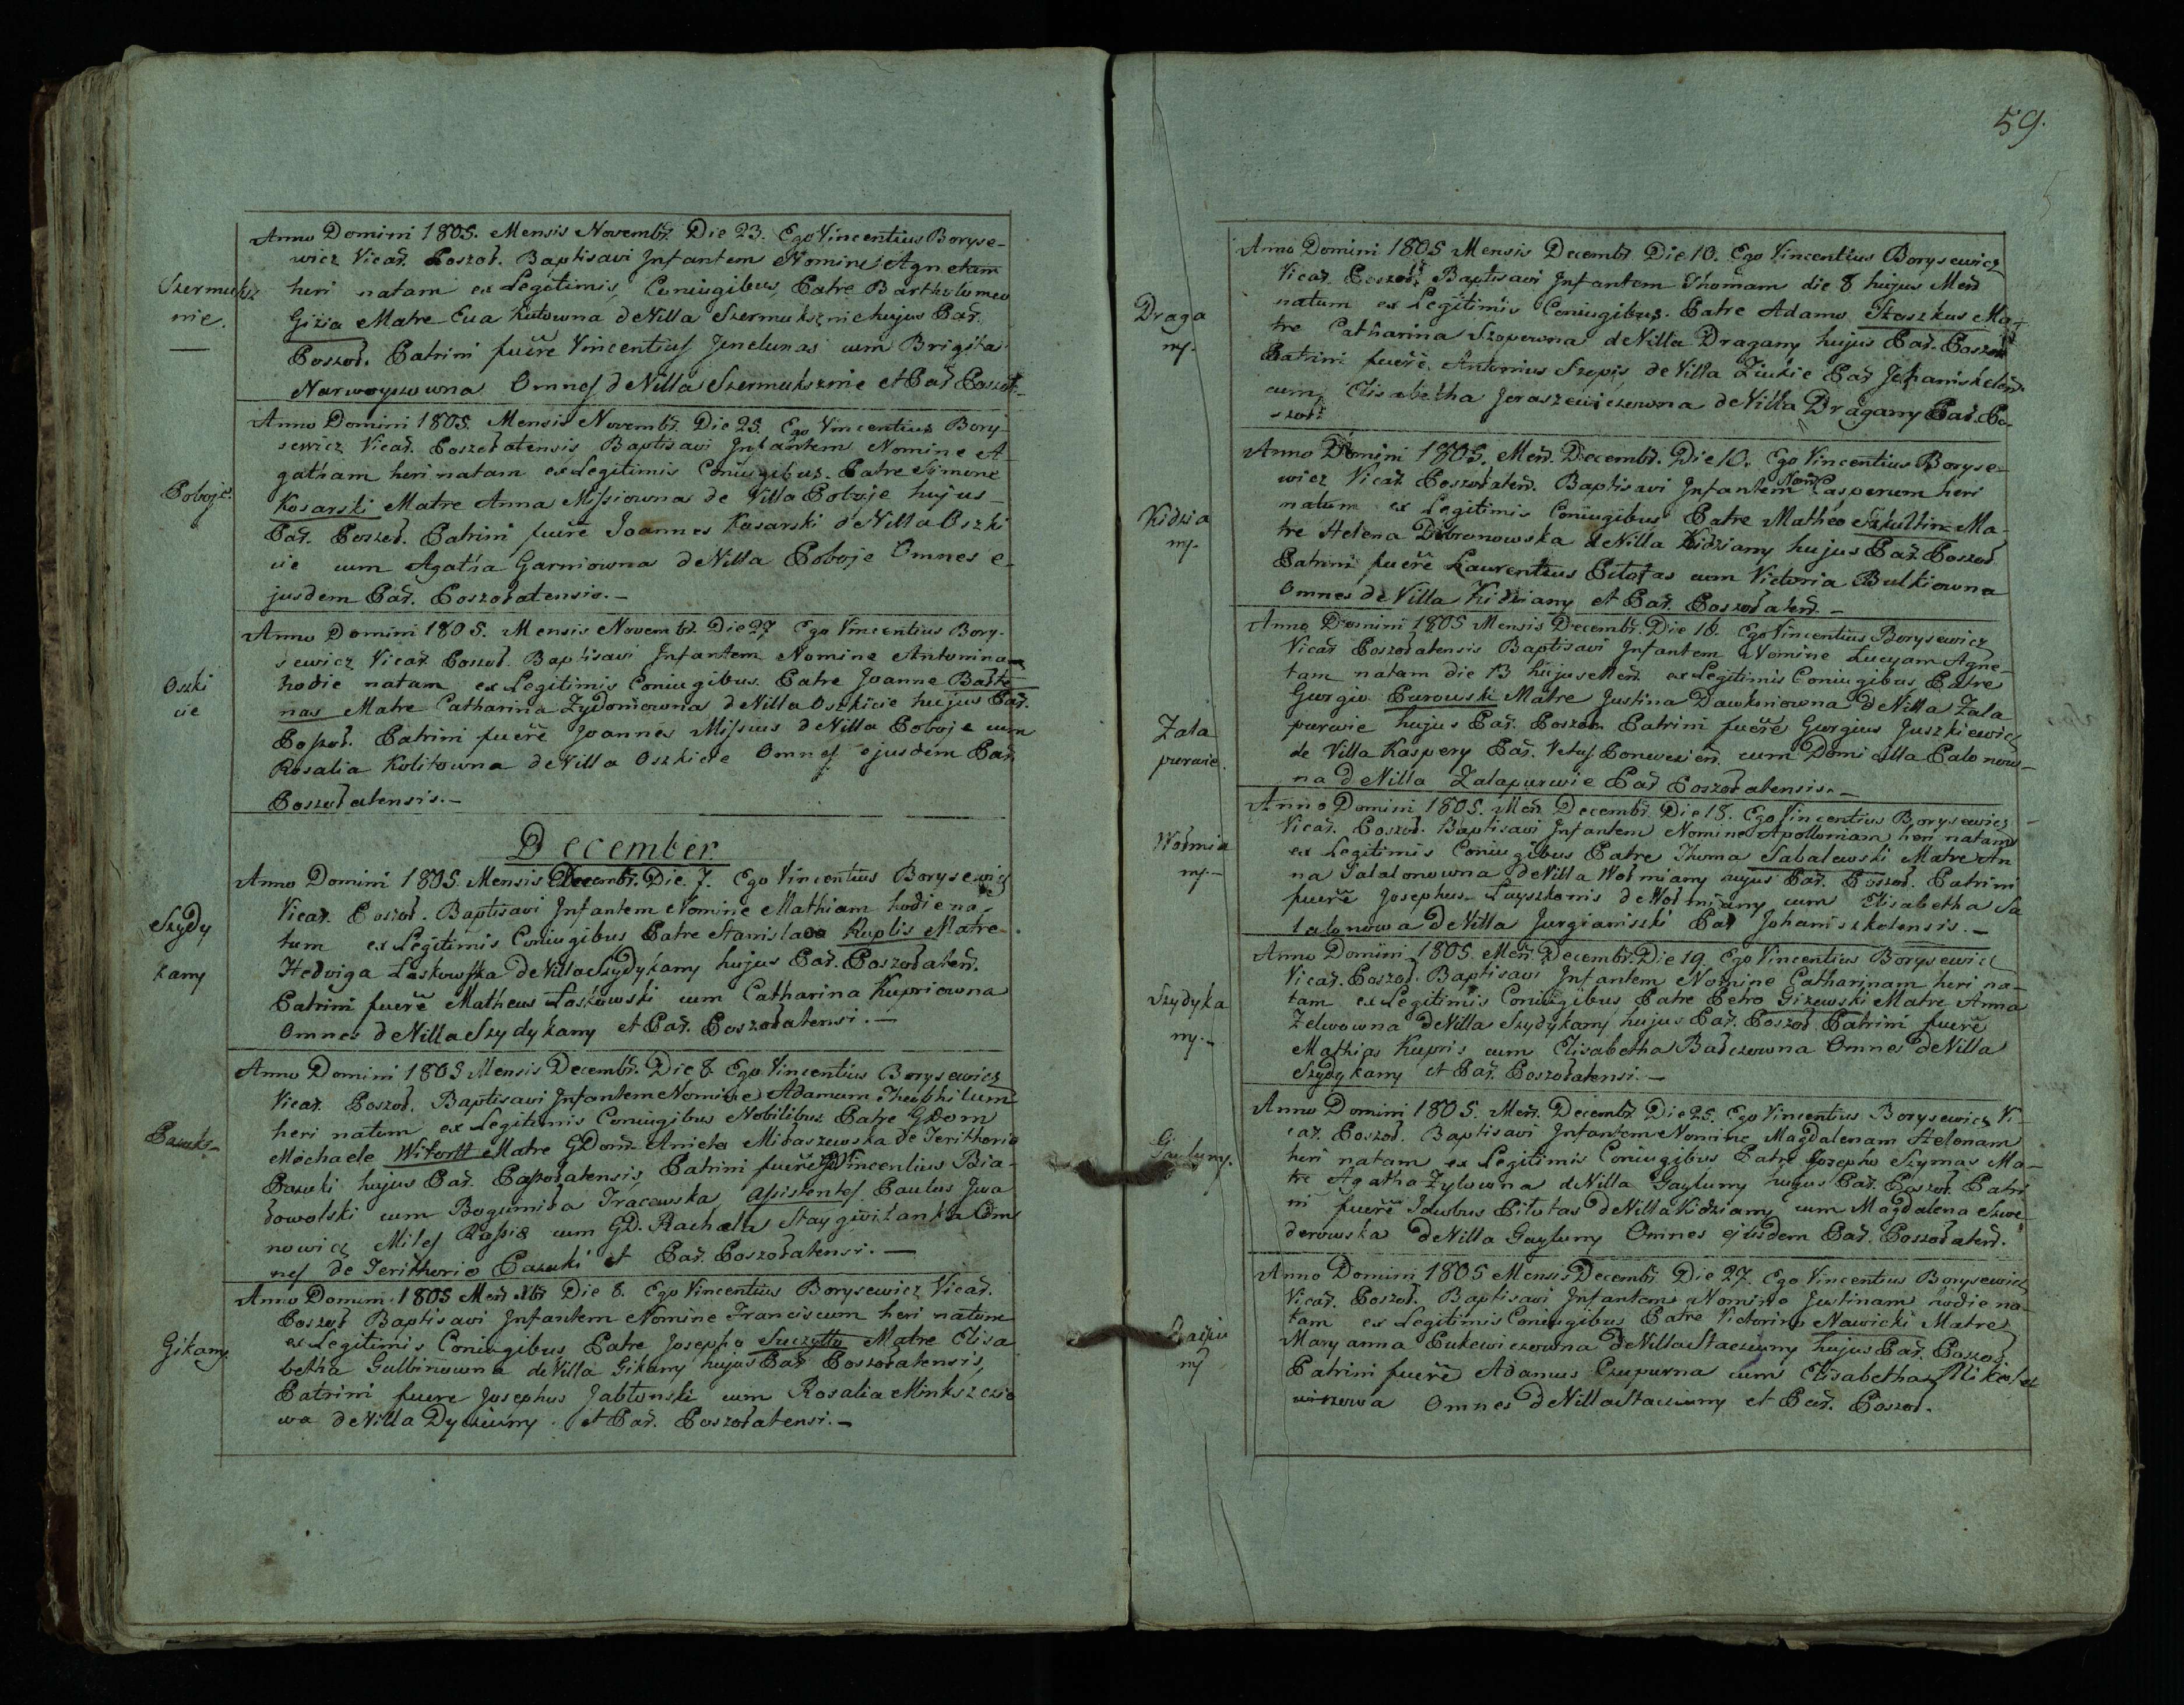 Szermuksz
nie.
Anno Domini 1805. Mensis Novembr. Die 23. Ego Vincentius Boryse-
wicz Vicar. Poszoł. Baptisavi Infantem Nomine Agnetam
heri natam ex Legitimis Coniugibus, Patre Bartholomeo
Gizia Matre Eva Kutowna de Villa Szermuksznie hujus Par.
Poszoł. Patrini fuere Vincentius Jenelunas cum Brigita
Narwoyszowna Omnes de Villa Szermuksznie et Par Poszoł.
Poboje
Anno Domini 1805. Mensis Novembr. Die 25. Ego Vincentius Bory-
sewicz Vicar. Poszołatensis Baptisavi Infantem Nomine A-
gatham heri natam ex Legitimis Coniugibus. Patre Simone
Kosarski Matre Anna Missiowna de Villa Poboje hujus
Par. Poszoł. Patrini fuere Joannes Kasarski de Villa Oszki
cie cum Agatha Garniowna de Villa Poboje Omnes e-
jusdem Par. Poszołatensis.-
Oszki
cie
Anno Domini 1805. Mensis Novembr. Die 27 Ego Vincentius Bory-
sewicz Vicar. Poszoł. Baptisavi Infantem Nomine Antoninam
hodie natam ex Legitimis Coniugibus. Patre Joanne Balto
nas Matre Catharina Zydoniowna de Villa Oszkicie hujus Par.
Poszoł. Patrini fuere Joannes Missius de Villa Poboje cum
Rosalia Kolitowna de Villa Oszkicie Omnes ejusdem Par.
Poszołatensis.-
December.
Szydy
kany
Anno Domini 1805. Mensis Decembr. Die 7. Ego Vincentius Borysewicz
Vicar. Poszoł. Baptisavi Infantem Nomine Mathiam hodie na-
tum ex Legitimis Coniugibus Patre Stanislao Kuplis Matre
Hedviga Laskowska de Villa Szydykany hujus Par. Poszołaten.
Patrini fuere Matheus Laskowski cum Catharina Kupriowna
Omnes de Villa Szydykany et Par. Poszołatensi.-
Pazuki-
Anno Domini 1805 Mensis Decembr. Die 8. Ego Vincentius Borysewicz
Vicar. Poszoł. Baptisavi Infantem Nomine Adamum Theophilum
heri natum ex Legitimis Coniugibus Nobilibus Patre GDom
Michaele Witortt Matre GDom. Aniela Midaszewska de Terithorio
Pazuki hujus Par. Poszołatensis, Patrini fuere GD Vincentius Bia-
dowolski cum Bogumiła Tracewska, assistentes Paulus Jwa
nowicz Miles Rossiae cum GD. Rachela Staygwiłanka Om
nes de Terithorio Pazuki et Par. Poszołatensi.-
Gikany
Anno Domini 1805 Men. Xbr Die 8. Ego Vincentius Borysewicz Vicar.
Poszoł Baptisavi Infantem Nomine Franciscum heri natum
ex Legitimis Coniugibus Patre Josepho Suczytto Matre Elisa
betha Gulbinowna de Villa Gikany hujus Par Poszołatensis,
Patrini fuere Josephus Jabłonski cum Rosalia Minkszcio
wa de Villa Dyciuny et Par. Poszołatensi.-
59.
Draga
ny.
Anno Domini 1805 Mensis Decembr Die 10. Ego Vincentius Borysewicz
Vicar. Poszoł. Baptisavi Infantem Thomam die 8 hujus Men
natum ex Legitimis Coniugibus. Patre Adamo Staszkus Ma-
tre Catharina Szopowna de Villa Dragany hujus Par. Poszoł
Patrini fuere, Antonius Szopis de Villa Ziukie Par Johaniskelen.
cum Elisabetha Joraszewiczowna de Villa Dragany Par. Po-
szoł:
Kidzia
ny.
Anno Domini 1805. Men. Decembr. Die 10. Ego Vincentius Boryse-
wicz Vicar. Poszołaten. Baptisavi Infantem Nom. Casperum heri
natum ex Legitimis Coniugibus Patre Matheo Szkultin Ma-
tre Helena Dobronowska de Villa Kidziany hujus Par. Poszoł
Patrini fuere Laurentius Piłotas cum Victoria Bulkiowna
Omnes de Villa Kidziany et Par. Poszołaten.-
Zala
purwie.
Anno Domini 1805 Mensis Decembr. Die 16. Ego Vincentius Borysewicz
Vicar Poszołatensis Baptisavi Infantem Nomine Lucyam Agne-
tam natam die 13 hujus Men. ex Legitimis Coniugibus Patre
Gurgio Purowski Matre Justina Dawksniowna de Villa Zala
purwie hujus Par. Poszoł. Patrini fuere Gurgius Juszkiewicz
de Villa Kaspery Par. Vetus Ponevezien. cum Domicella Palonow-
na de Villa Zalapurwie Par Poszołatensis.-
Wołmia
ny.-
Anno Domini 1805. Men. Decembr. Die 18. Ego Vincentius Borysewicz
Vicar. Poszoł. Baptisavi Infantem Nomine Apolloniam heri natam
ex Legitimis Coniugibus Patre Thoma Sabalewski Matre An
na Salalonowna de Villa Wołmiany hujus Par. Poszoł. Patrini
fuere Josephus Łuyszkonis de Wołmiany cum Elisabetha Sa
lalonowa de Villa Jurgianiszki Par Johaniszkelensis.-
Szydyka
ny.-
Anno Domini 1805. Men. Decembr. Die 19. Ego Vincentius Borysewicz
Vicar. Poszoł. Baptisavi Infantem Nomine Catharinam heri na-
tam ex Legitimis Coniugibus Patre Petro Gizewski Matre Anna
Zelwowna de Villa Szydykany hujus Par. Poszoł. Patrini fuere
Mathias Kupris cum Elisabetha Balczowna Omnes de Villa
Szydykany et Par. Poszołatensi.-
Gayluny.
Anno Domini 1805. Men. Decembr. Die 25. Ego Vincentius Borysewicz Vi-
car. Poszoł. Baptisavi Infantem Nomine Magdalenam Helenam
heri natam ex Legitimis Coniugibus Patre Josepho Szymas Ma-
tre Agatha Zylowna de Villa Gayluny hujus Par. Poszoł. Patri
ni fuere Jacobus Piłotas de Villa Kidziany cum Magdalena Szwe-
derowska de Villa Gayluny Omnes ejusdem Par. Poszołaten.
ny
Anno Domini 1805 Mensis Decembr. Die 27. Ego Vincentius Borysewicz
Vicar. Poszoł. Baptisavi Infantem Nomine Justinam hodie na-
tam ex Legitimis Coniugibus Patre Victorino Nawicki Matre
Maryanna Pukewiczowna de Villa Staciuny hujus Par. Poszoł.
Patrini fuere Adamus Czupurna cum Elisabetha Mikole
wiczowa Omnes de Villa Staciuny et Par. Poszoł.